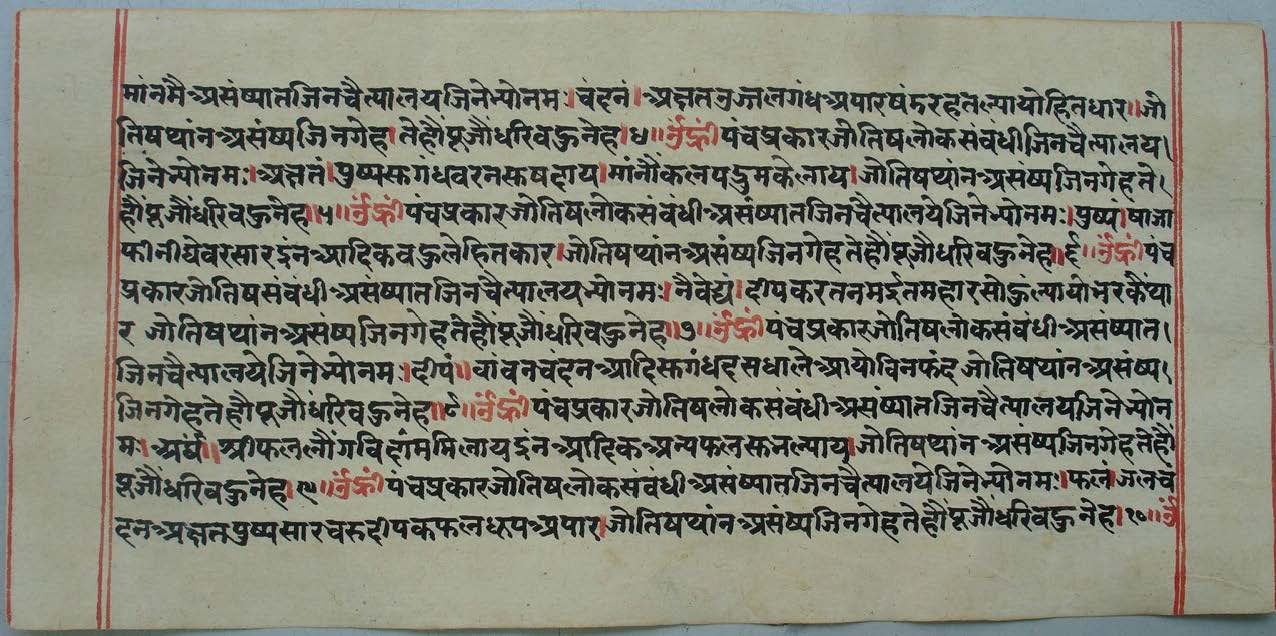 मांनमै असंष्यातजिनचैत्यालयजिनेभ्योनमः। चंदनं। अक्षतउज्जलगंधअपारषंडरहतल्यायोहितधार॥ जो
तिषथांनअसंष्यजिनगेह। तेहौंपूजौंधरिवहुनेह। ५॥ ॐह्रीं पंचप्रकारजोतिषलोकसंबंधीजिनचैत्यालय।
जिनेभ्योनमः। अक्षतं। पुष्पसुगंधवरनसुषदाय। मांनौंकलपद्रुमकेलाय। जोतिषथांनअसंष्यजिनगेहते।
हौंपूजौंधरिवहुनेह। ५॥ ॐह्रीं पंचप्रकारजोतिषलोकसंबंधीअसंष्यातजिनचैत्यालयेजिनेभ्योनमः। पुष्पं। षाजा
फीनीघेवरसारइंनआदिकवहुलेहितकार। जोतिषथांनअसंष्यजिनगेहतेहौंपूजौधरिवहुनेह। ६॥ ॐह्रीं पंच
प्रकारजोतिषसंबंधीअसंष्यातजिनचैत्यालयभ्योनमः। नैवेद्यं। दीपकरतनमईतमहारसोहुंल्यायोभरकैंथा
र जोतिषथांनअसंष्यजिनगेहतेहौंपूजौंधरिवहुनेह। ७॥ ॐह्रीं पंचप्रकारजोतिषलोकसंबंधीअसंष्यात।
जिनचैत्यालयेजिनेभ्योनमः। दीपं। वांवनचंदनआदिसुगंधदसधालेआयोविनफंद जोतिषथांनअसंष्य।
जिनगेहतेहौंपूजौंधरिवहुनेह। ८॥ ॐह्रीं पंचप्रकारजोतिषलोकसंबंधीअसंष्यातजिनचैत्यालयजिनेभ्योन
मः। अर्घं॥ श्रीफललौंगविदांममिलायइंनआदिकअन्यफलसुनल्याय। जोतिषथांनअसंष्यजिनगेहतेहौं
पूजौंधरिवहुनेह। ९॥ ॐह्रीं पंचप्रकारजोतिषलोकसंबंधीअसंष्यातजिनचैत्यालयेजिनेभ्योनमः। फलं। जलचं
दनअक्षतपुष्पसारचरुदीपकफलधूपअपार। जोतिषथांनअसंष्यजिनगेहतेहौंपूजौंधरिवहुनेह। १०॥ ॐ